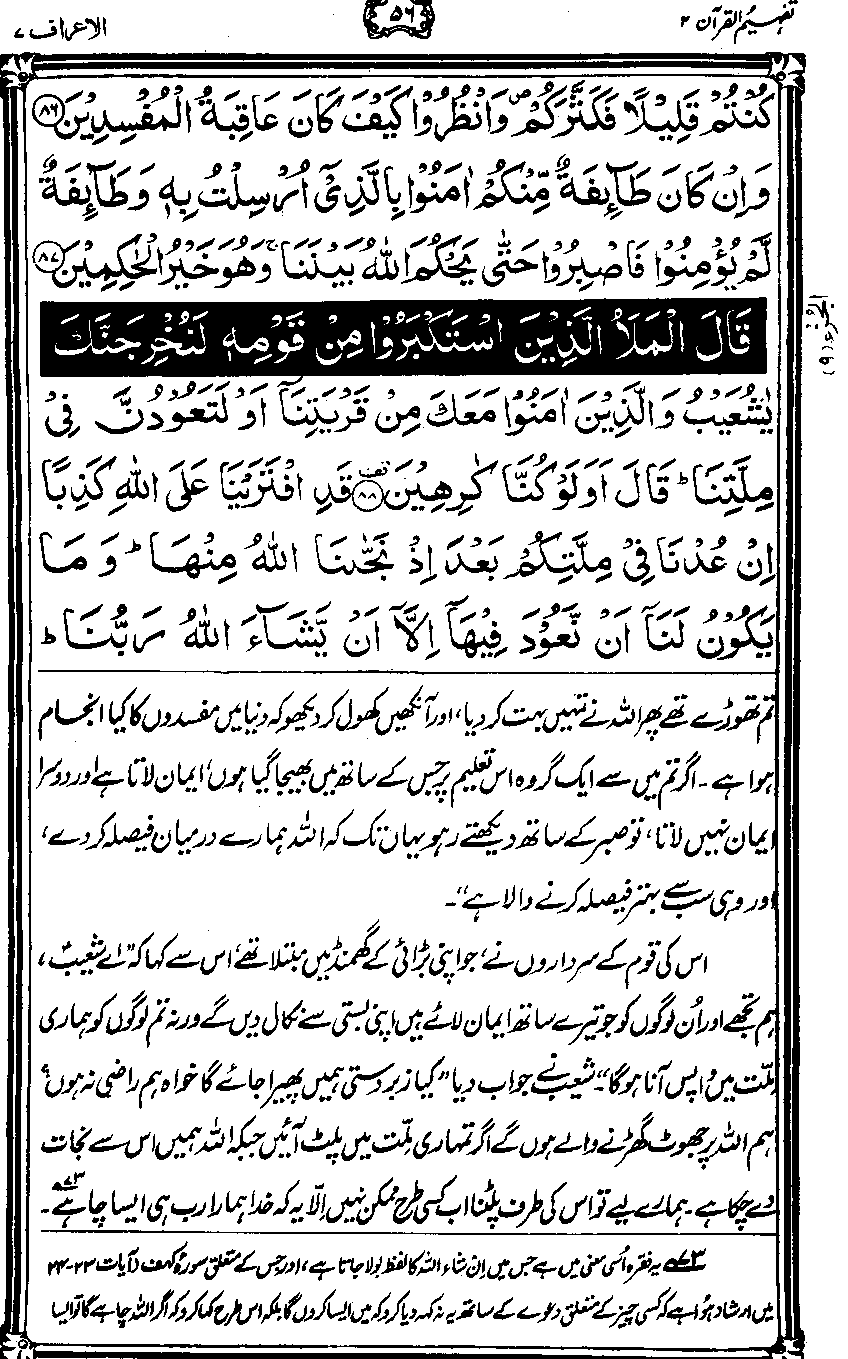 تفہیم القرآن ۲
۵۶
الاعراف ۷
كُنْتُمْ قَلِيْلًا فَكَثَّرَكُمْ ۖ وَانْظُرُوْا كَيْفَ كَانَ عَاقِبَةُ الْمُفْسِدِيْنَ ﴿۸۶﴾
وَاِنْ كَانَ طَآئِفَةٌ مِّنْكُمْ اٰمَنُوْا بِالَّذِيْٓ اُرْسِلْتُ بِهٖ وَطَآئِفَةٌ
لَّمْ يُؤْمِنُوْا فَاصْبِرُوْا حَتّٰى يَحْكُمَ اللّٰهُ بَيْنَنَا ۚ وَهُوَ خَيْرُ الْحٰكِمِيْنَ ﴿۸۷﴾
قَالَ الْمَلَاُ الَّذِيْنَ اسْتَكْبَرُوْا مِنْ قَوْمِهٖ لَنُخْرِجَنَّكَ
الجزء (۹)
يٰشُعَيْبُ وَالَّذِيْنَ اٰمَنُوْا مَعَكَ مِنْ قَرْيَتِنَآ اَوْ لَتَعُوْدُنَّ فِيْ
مِلَّتِنَا ؕ قَالَ اَوَلَوْ كُنَّا كٰرِهِيْنَ ﴿۸۸﴾ قَدِ افْتَرَيْنَا عَلَى اللّٰهِ كَذِبًا
اِنْ عُدْنَا فِيْ مِلَّتِكُمْ بَعْدَ اِذْ نَجّٰىنَا اللّٰهُ مِنْهَا ؕ وَمَا
يَكُوْنُ لَنَآ اَنْ نَّعُوْدَ فِيْهَآ اِلَّآ اَنْ يَّشَآءَ اللّٰهُ رَبُّنَا ؕ
تم تھوڑے تھے پھر اللہ نے تمہیں بہت کر دیا، اور آنکھیں کھول کر دیکھو کہ دنیا میں مفسدوں کا کیا انجام
ہوا ہے۔ اگر تم میں سے ایک گروہ اس تعلیم پر جس کے ساتھ میں بھیجا گیا ہوں، ایمان لاتا ہے اور دوسرا
ایمان نہیں لاتا، تو صبر کے ساتھ دیکھتے رہو یہاں تک کہ اللہ ہمارے درمیان فیصلہ کر دے،
اور وہی سب سے بہتر فیصلہ کرنے والا ہے“۔
اس کی قوم کے سرداروں نے، جو اپنی بڑائی کے گھمنڈ میں مبتلا تھے، اس سے کہا کہ ”اے شعیبؑ،
ہم تجھے اور اُن لوگوں کو جو تیرے ساتھ ایمان لائے ہیں اپنی بستی سے نکال دیں گے ورنہ تم لوگوں کو ہماری
مِلّت میں واپس آنا ہوگا“۔ شعیبؑ نے جواب دیا ”کیا زبردستی ہمیں پھیرا جائے گا خواہ ہم راضی نہ ہوں؟
ہم اللہ پر جھوٹ گھڑنے والے ہوں گے اگر تمہاری مِلّت میں پلٹ آئیں جبکہ اللہ ہمیں اس سے نجات
دے چکا ہے۔ ہمارے لیے تو اس کی طرف پلٹنا اب کسی طرح ممکن نہیں اِلّا یہ کہ خدا ہمارا رب ہی ایسا چاہے۷۳۔
۷۳ یہ فقرہ اُسی معنی میں ہے جس میں اِن شاء اللہ کا لفظ بولا جاتا ہے، اور جس کے متعلق سورۂ کہف (آیات ۲۳-۲۴
میں ارشاد ہوا ہے کہ کسی چیز کے متعلق دعوے کے ساتھ یہ نہ کہہ دیا کرو کہ میں ایسا کروں گا بلکہ اس طرح کہا کرو کہ اگر اللہ چاہے گا تو ایسا